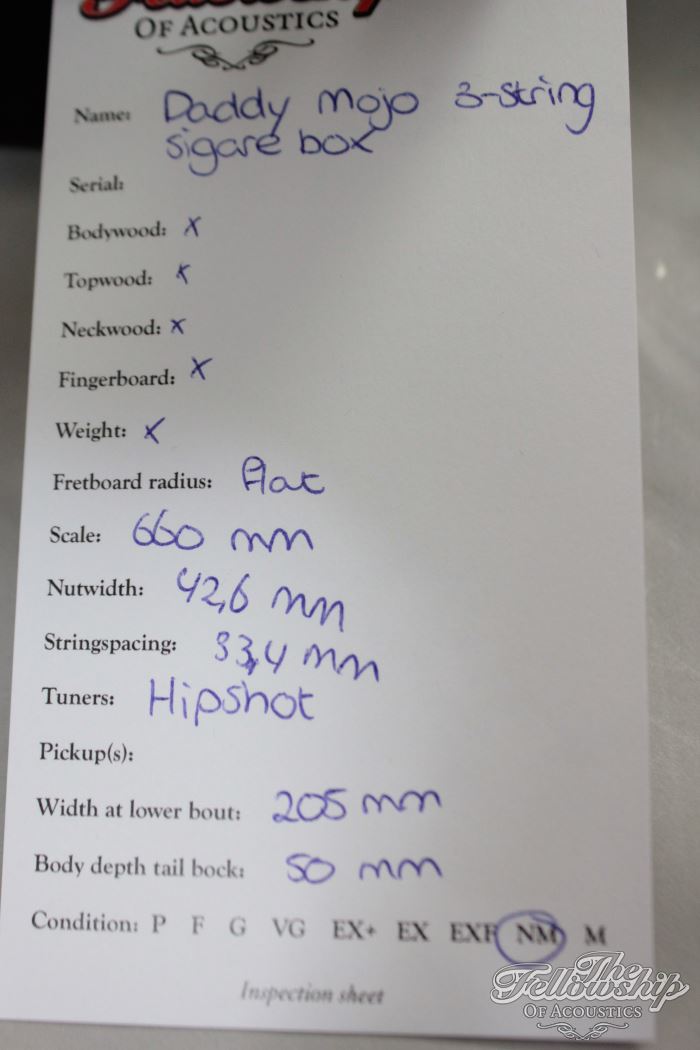 Fellowship
OF ACOUSTICS
Name: Daddy Mojo 3-string
sigare box
Serial:
Bodywood: x
Topwood: x
Neckwood: x
Fingerboard: x
Weight: x
Fretboard radius: flat
Scale: 660 mm
Nutwidth: 42,6 mm
Stringspacing: 33,4 mm
Tuners: Hipshot
Pickup(s):
Width at lower bout: 205 mm
Body depth tail bock: 50 mm
Condition: P F G VG EX+ EX EXF NM M
Inspection sheet
The
Fellowship
OF ACOUSTICS